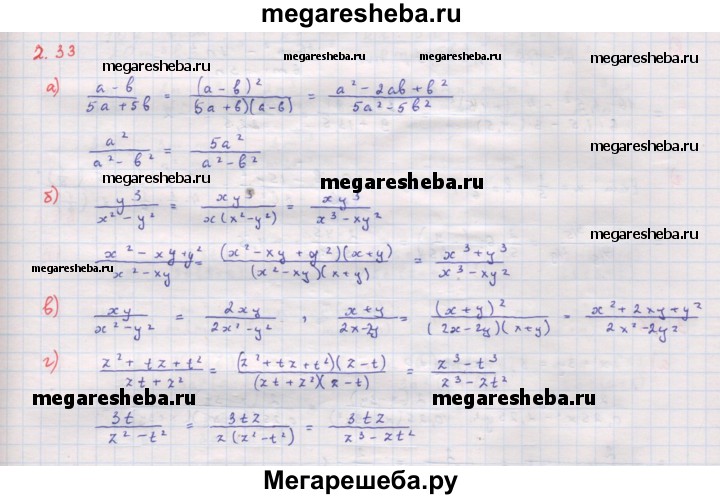 megaresheba.ru
2.33
megaresheba.ru megaresheba.ru megaresheba.ru
а) (a - b)/(5a + 5b) = (a - b)²/((5a + b)(a - b)) = (a² - 2ab + b²)/(5a² - 5b²)
a²/(a² - b²) = 5a²/(a² - b²)
megaresheba.ru
megaresheba.ru
б) y³/(x² - y²) = xy³/(x(x² - y²)) = xy³/(x³ - xy²)
megaresheba.ru
(x² - xy + y²)/(x² - xy) = ((x² - xy + y²)(x + y))/((x² - xy)(x + y)) = (x³ + y³)/(x³ - xy²)
megaresheba.ru
в) xy/(x² - y²) = 2xy/(2x² - y²) , (x + y)/(2x - 2y) = (x + y)²/((2x - 2y)(x + y)) = (x² + 2xy + y²)/(2x² - 2y²)
г) (z² + tz + t²)/(zt + z²) = ((z² + tz + t²)(z - t))/((zt + z²)(z - t)) = (z³ - t³)/(z³ - zt²)
megaresheba.ru megaresheba.ru megaresheba.ru
3t/(z² - t²) = 3tz/(z(z² - t²)) = 3tz/(z³ - zt²)
Мегарешеба.ру